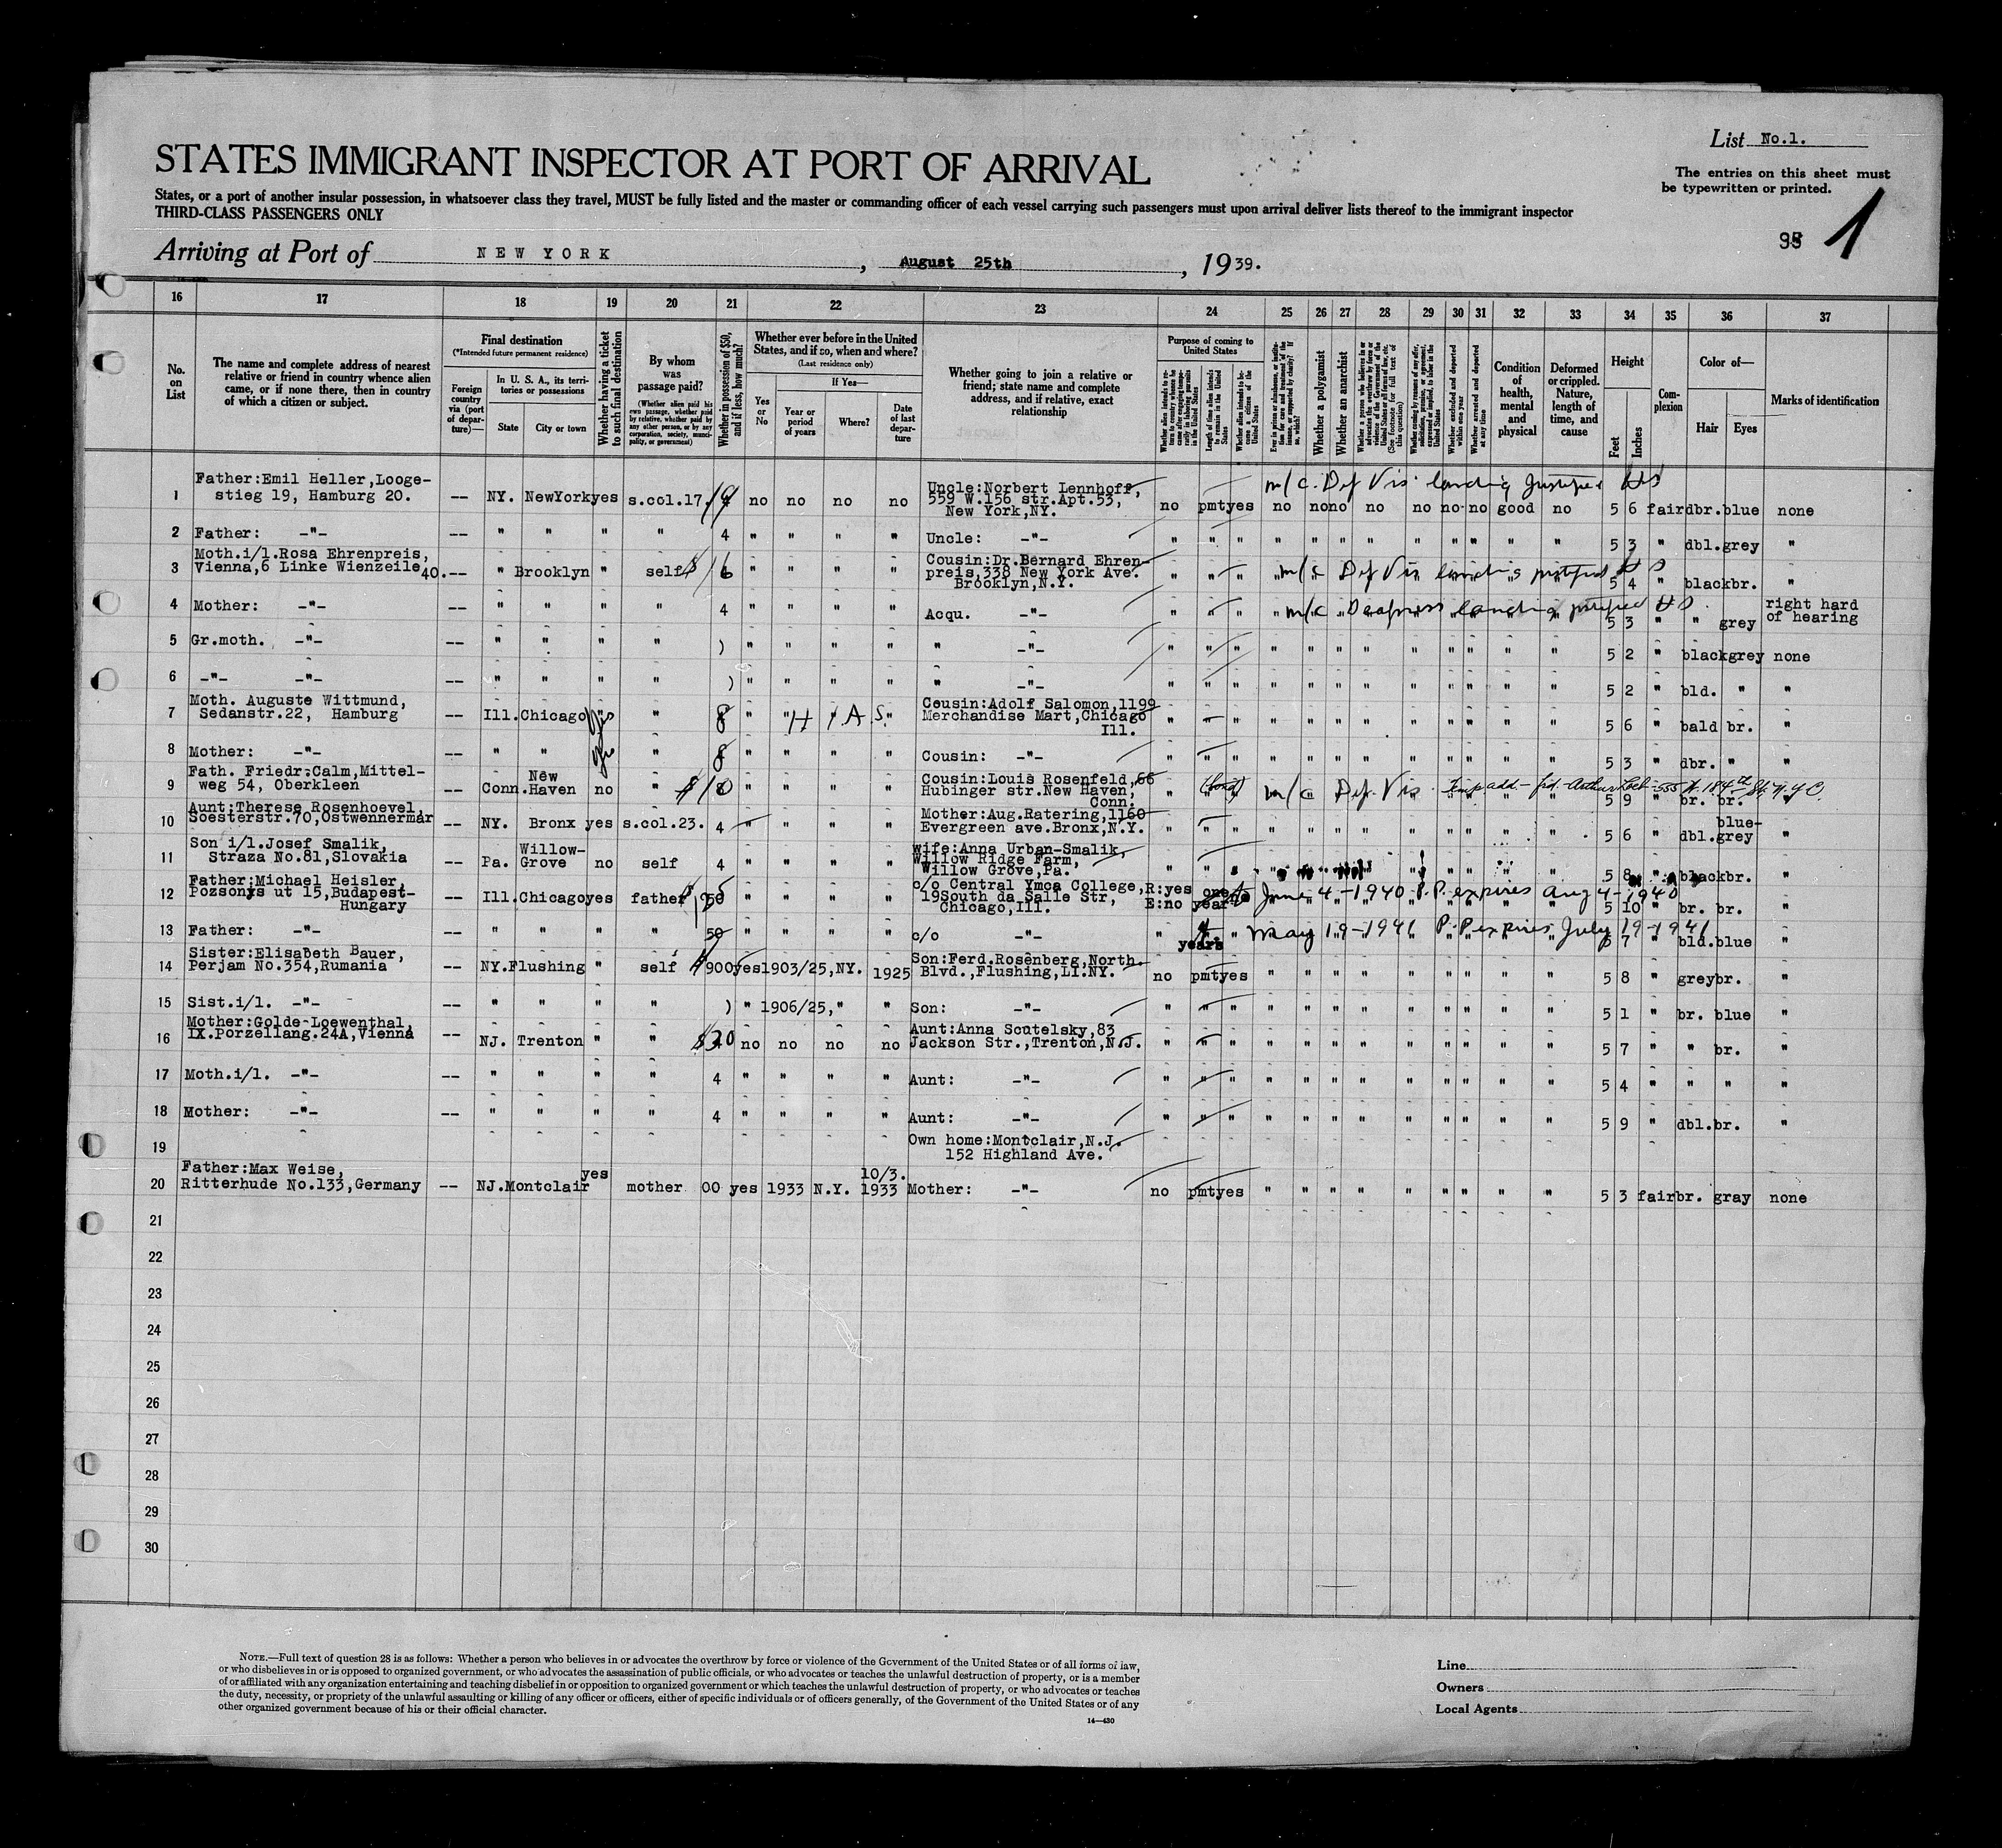 List No.1.
STATES IMMIGRANT INSPECTOR AT PORT OF ARRIVAL
The entries on this sheet must
be typewritten or printed.
States, or a port of another insular possession, in whatsoever class they travel, MUST be fully listed and the master or commanding officer of each vessel carrying such passengers must upon arrival deliver lists thereof to the immigrant inspector
THIRD-CLASS PASSENGERS ONLY
1
Arriving at Port of NEW YORK, August 25th, 1939.
16 17 18 19 20 21 22 23 24 25 26 27 28 29 30 31 32 33 34 35 36 37
No. on List
The name and complete address of nearest relative or friend in country whence alien came, or if none there, then in country of which a citizen or subject.
Final destination
(*Intended future permanent residence)
Foreign country via (port of departure)—
In U. S. A., its territories or possessions
State
City or town
Whether having a ticket to such final destination
By whom was passage paid?
(Whether alien paid his own passage, whether paid by relative, whether paid by any other person, or by any corporation, society, municipality, or government)
Whether in possession of $50, and if less, how much?
Whether ever before in the United States, and if so, when and where?
(Last residence only)
Yes or No
If Yes—
Year or period of years
Where?
Date of last departure
Whether going to join a relative or friend; state name and complete address, and if relative, exact relationship
Purpose of coming to United States
Length of time alien intends to remain in the United States
Whether alien intends to become a citizen of the United States
Whether a polygamist
Whether an anarchist
Whether excluded and deported within one year
Whether arrested and deported at any time
Condition of health, mental and physical
Deformed or crippled. Nature, length of time, and cause
Height
Feet
Inches
Complexion
Color of—
Hair
Eyes
Marks of identification
m/c. Def Vis. landing justified HS
1 Father:Emil Heller,Loogestieg 19, Hamburg 20. -- NY. NewYork yes s.col.17. no no no no Uncle:Norbert Lennhoff, 559 W.156 str.Apt.53, New York,NY. no pmt yes no no no no no no no good no 5 6 fair dbr. blue none
2 Father: -"- -- " " " " 4 " " " " Uncle: -"- " " " " " " " " " " " " 5 3 " dbl. grey "
3 Moth.i/l.Rosa Ehrenpreis, Vienna,6 Linke Wienzeile 40. -- " Brooklyn " self " " " " Cousin:Dr.Bernard Ehrenpreis,338 New York Ave. Brooklyn,N.Y. " " " m/c Def Vis landing justified HS 5 4 " black br. "
4 Mother: -"- -- " " " " 4 " " " " Acqu. -"- " " " m/c Deafness landing justified HS 5 3 " " grey right hard of hearing
5 Gr.moth. -"- -- " " " " ) " " " " " -"- " " " " " " " " " " " " 5 2 " black grey none
6 -"- -"- -- " " " " ) " " " " " -"- " " " " " " " " " " " " 5 2 " bld. " "
7 Moth. Auguste Wittmund, Sedanstr.22, Hamburg -- Ill. Chicago yes " 8 " H I A S. Cousin:Adolf Salomon,1199 Merchandise Mart,Chicago Ill. " " " " " " " " " " " 5 6 " bald br. "
8 Mother: -"- -- " " " 8 " " " " Cousin: -"- " " " " " " " " " " " 5 3 " dbr. " "
9 Fath. Friedr.Calm,Mittelweg 54, Oberkleen -- Conn. New Haven no " $10 " " " " Cousin:Louis Rosenfeld,66 Hubinger str.New Haven, Conn. " (bond) " m/c Def. Vis. 5 9 " br. br. "
10 Aunt:Therese Rosenhoevel, Soesterstr.70,Ostwennermar -- NY. Bronx yes s.col.23. 4 " " " " Mother:Aug.Ratering,1160 Evergreen ave.Bronx,N.Y. " " " " " " " " " " " " 5 6 " dbl. blue-grey "
11 Son i/l.Josef Smalik, Straza No.81,Slovakia -- Pa. Willow-Grove no self 4 " " " " wife:Anna Urban-Smalik, Willow Ridge Farm, Willow Grove,Pa. " " " 5 8 " black br. "
12 Father:Michael Heisler, Pozsonyi ut 15,Budapest-Hungary -- Ill. Chicago yes father " " " " c/o Central Ymca College, 19South da Salle Str, Chicago,Ill. R:yes E:no one year to June 4-1940 P.P. expires Aug 4-1940 5 10 " br. br. "
13 Father: -"- -- " " " " 50 " " " " c/o -"- " years " May 19-1941 P.P expires July 19-1941 5 7 " bld. blue "
14 Sister:Elisabeth Bauer, Perjam No.354,Rumania -- NY. Flushing " self $900 yes 1903/25,NY. 1925 Son:Ferd.Rosenberg,North. Blvd.,Flushing,LI.NY. no pmt yes " " " " " " " " " 5 8 " grey br. "
15 Sist.i/l. -"- -- " " " " ) " 1906/25," " Son: -"- " " " " " " " " " " " " 5 1 " br. blue "
16 Mother:Golde Loewenthal, IX.Porzellang.24A,Vienna -- NJ. Trenton " " no no no no Aunt:Anna Scutelsky,83 Jackson Str.,Trenton,N.J. " " " " " " " " " " " " 5 7 " " br. "
17 Moth.i/l. -"- -- " " " " 4 " " " " Aunt: -"- " " " " " " " " " " " " 5 4 " " " "
18 Mother: -"- -- " " " " 4 " " " " Aunt: -"- " " " " " " " " " " " " 5 9 " dbl. br. "
19 Own home:Montclair,N.J. 152 Highland Ave.
20 Father:Max Weise, Ritterhude No.133,Germany -- NJ. Montclair yes mother 00 yes 1933 N.Y. 10/3. 1933 Mother: -"- no pmt yes " " " " " " " " " 5 3 fair br. gray none
21
22
23
24
25
26
27
28
29
30
NOTE.—Full text of question 28 is as follows: Whether a person who believes in or advocates the overthrow by force or violence of the Government of the United States or of all forms of law,
or who disbelieves in or is opposed to organized government, or who advocates the assassination of public officials, or who advocates or teaches the unlawful destruction of property, or is a member
of or affiliated with any organization entertaining and teaching disbelief in or opposition to organized government or which teaches the unlawful destruction of property, or who advocates or teaches
the duty, necessity, or propriety of the unlawful assaulting or killing of any officer or officers, either of specific individuals or of officers generally, of the Government of the United States or of any
other organized government because of his or their official character.
14—430
Line
Owners
Local Agents